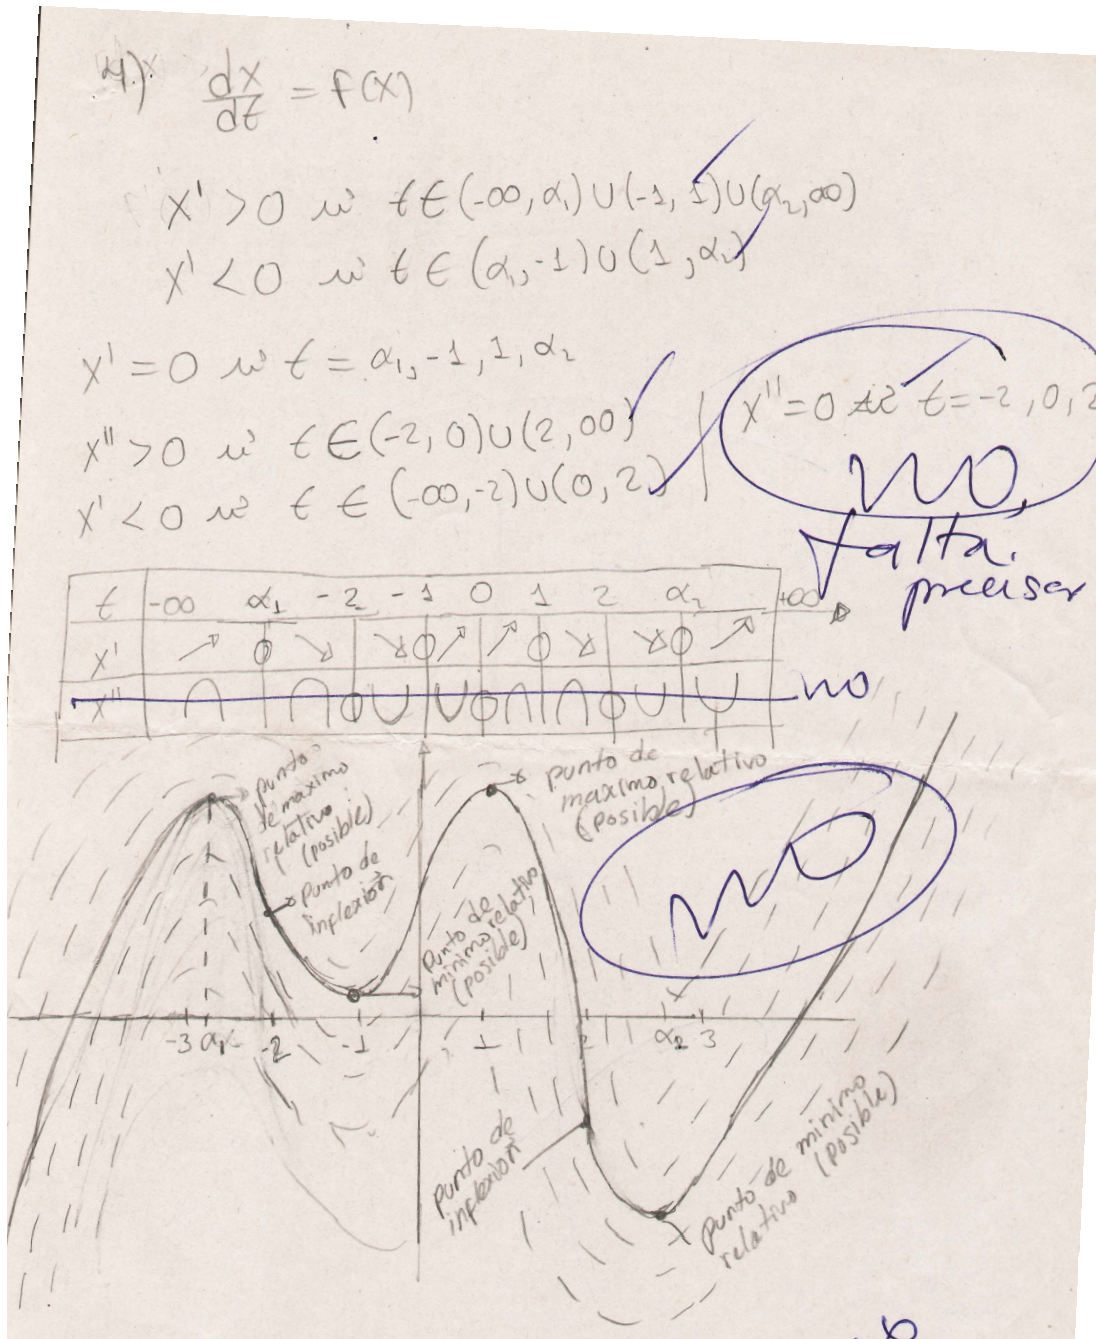 4) dx/dt = f(x)
x' > 0 si t ∈ (-∞, α₁) ∪ (-1, 1) ∪ (α₂, ∞)
x' < 0 si t ∈ (α₁, -1) ∪ (1, α₂)
x' = 0 si t = α₁, -1, 1, α₂
x'' > 0 si t ∈ (-2, 0) ∪ (2, ∞)
x' < 0 si t ∈ (-∞, -2) ∪ (0, 2)
x'' = 0 si t = -2, 0, 2
NO,
falta
precisar
t -∞ α₁ -2 -1 0 1 2 α₂ +∞
x' ↗ 0 ↘ ↘ 0 ↗ ↗ 0 ↘ ↘ 0 ↗
x'' ∩ ∩ 0 ∪ ∪ 0 ∩ ∩ 0 ∪ ∪
NO
punto
de maximo
relativo
(posible)
punto de
inflexión
punto de
maximo relativo
(posible)
NO
Punto de
minimo relativo
(posible)
-3 α₁ -2 -1 1 2 α₂ 3
punto de
inflexión
punto de minimo
relativo (posible)